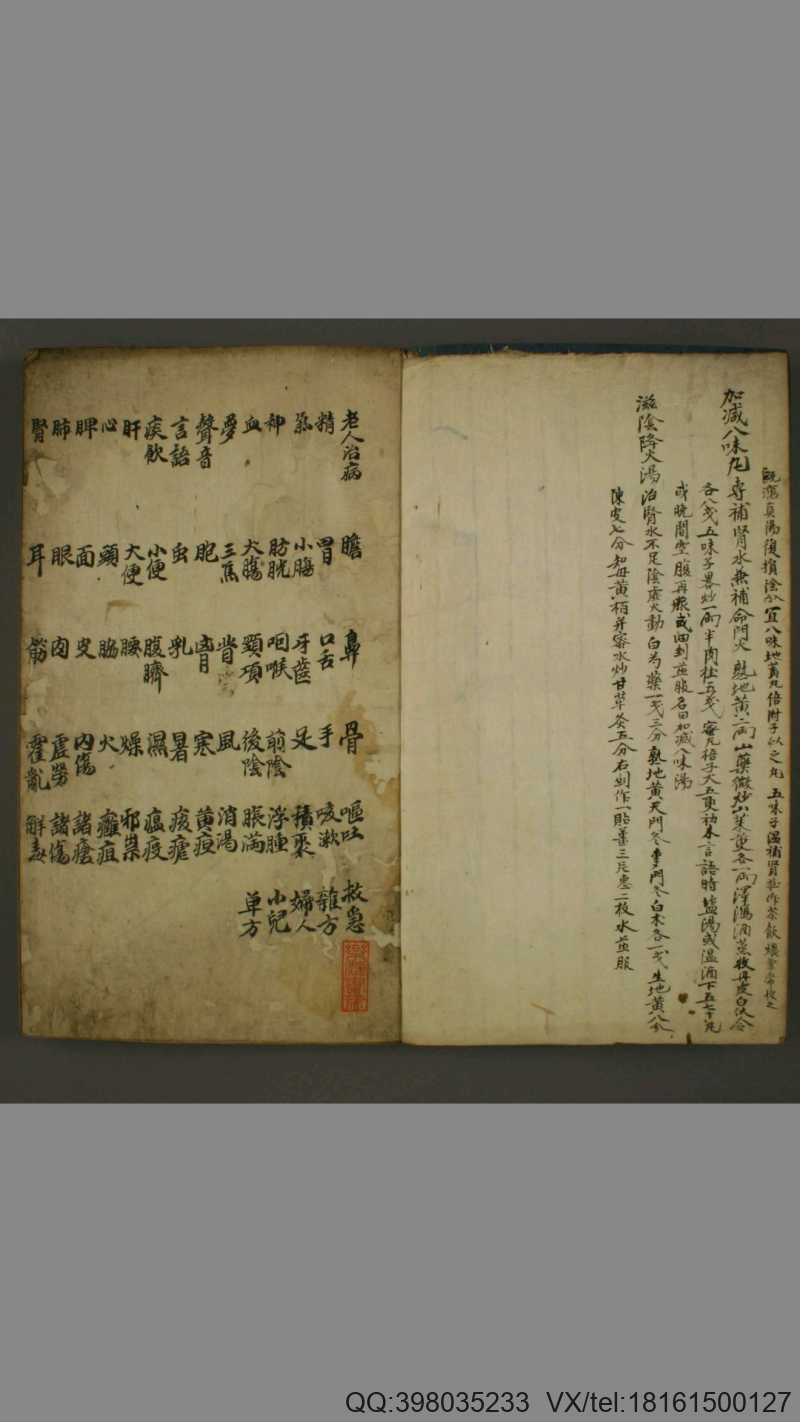 既瀉真陽復損陰宜八味地黃丸倍附子以之丸 五味子溫補腎作茶飲
加減八味丸 專補腎水兼補命門火 熟地黃二兩山藥微炒山茱萸各一兩澤瀉酒蒸牧丹皮白茯苓
各八戔五味子畧炒一兩半肉桂五戔蜜丸梧子大五更初未言語時盐湯或温酒下五七十丸
或晚間空腹再服或剉煎服名曰加減八味湯
滋陰降火湯 治腎水不足陰虛火動 白芍藥一戔三分熟地黃天門冬麥門冬白朮各一戔生地黃八分
陳皮七分知母黃栢并蜜水炒甘草灸五分右剉作一貼薑三片棗二枚水煎服
老人治病 膽 鼻 骨 嘔吐 救急
精 胃 口舌 手 咳漱 雜方
氣 小膓 牙齒 足 積聚 婦人
神 肪胱 咽喉 前陰 浮腫 小兒
血 大膓 頸項 後陰 脹滿 单方
夢 三焦 背 風 消渴
聲音 胞 胷 寒 黃疸
言語 虫 乳 暑 痎瘧
痰飲 小便 腹臍 濕 瘟疫
肝 大便 腰 燥 邪祟
心 頭 脇 火 癰疽
脾 面 皮 内傷 諸瘡
肺 眼 肉 虛勞 諸傷
腎 耳 筋 霍亂 解毒
QQ:398035233 VX/tel:18161500127